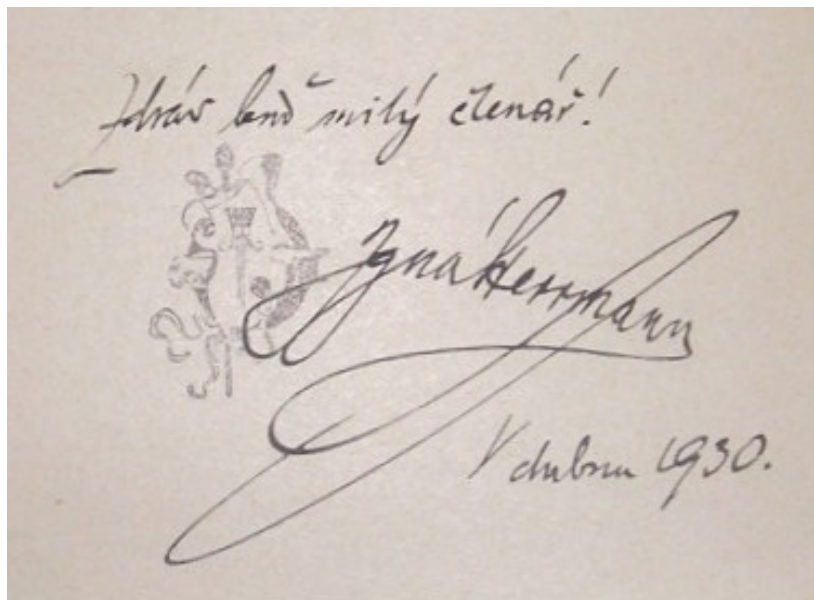 Zdráv buď milý čtenář!
Ignát Herrmann
V dubnu 1930.